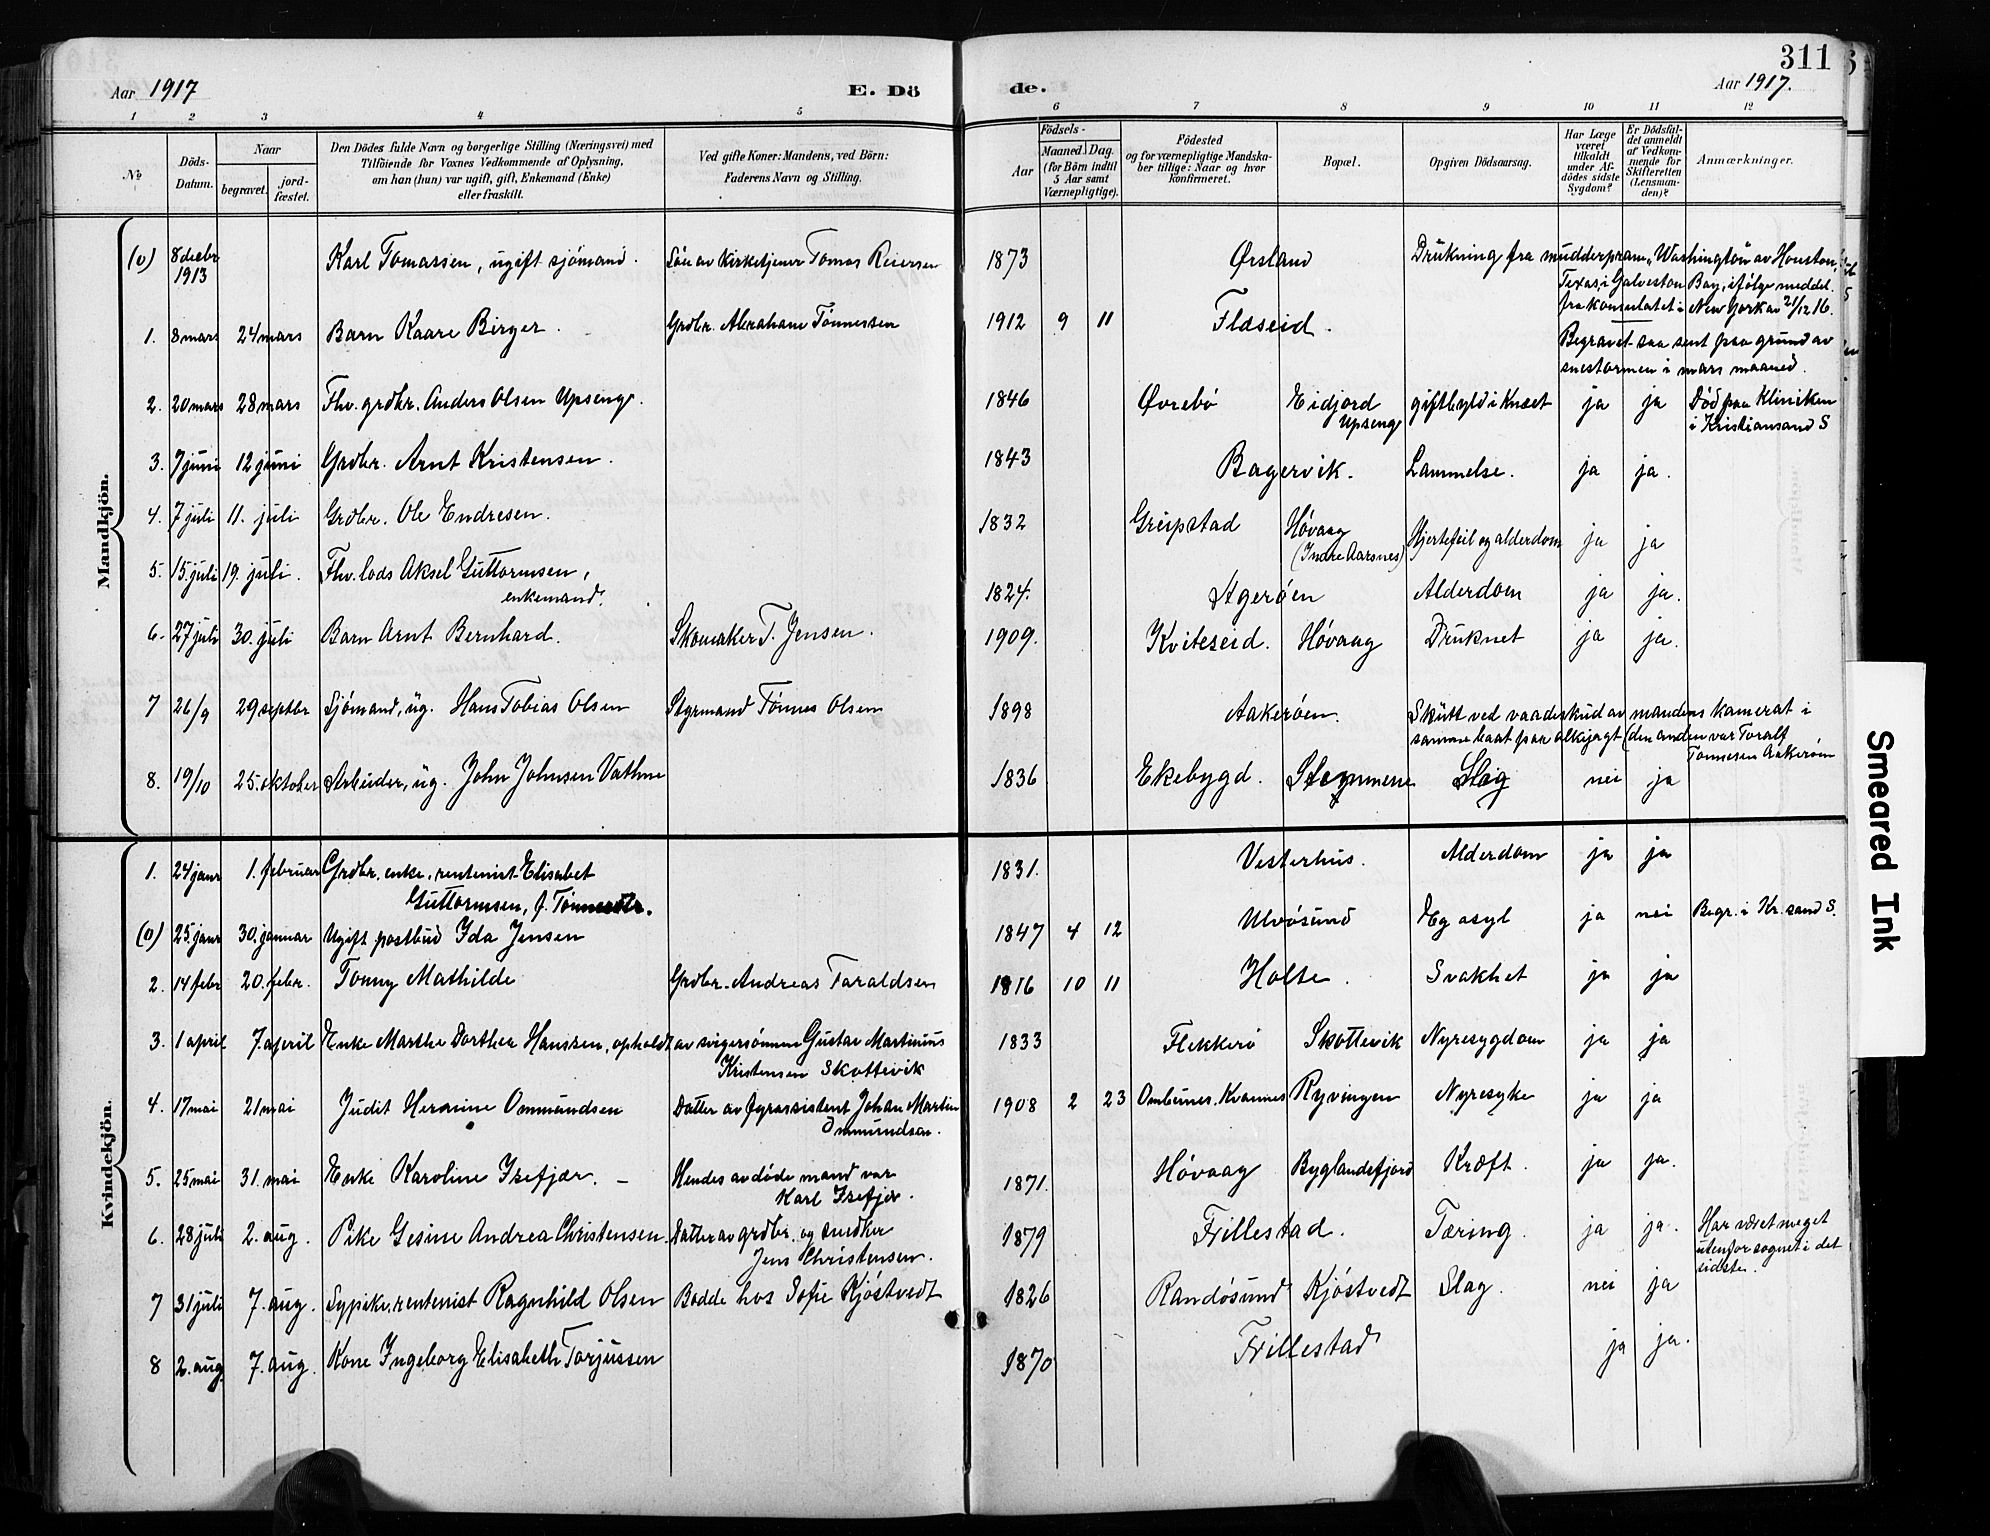 311
Aar 1917
E. Dö
de.
Aar 1917.
1 2 3 4 5 6 7 8 9 10 11 12
No
Döds-Datum.
Naar
begravet.
jord-fæstet.
Den Dödes fulde Navn og borgerlige Stilling (Næringsvei) med
Tilföiende for Voxnes Vedkommende af Oplysning,
om han (hun) var ugift, gift, Enkemand (Enke)
eller fraskilt.
Ved gifte Koner: Mandens, ved Börn:
Faderens Navn og Stilling.
Födsels-
Aar
Maaned. Dag.
(for Börn indtil
5 Aar samt
Værnepligtige).
Födested
og for værnepligtige Mandska-
ber tillige: Naar og hvor
konfirmeret.
Bopæl.
Opgiven Dödsaarsag.
Har Læge
været
tilkaldt
under Af-
dödes sidste
Sygdom?
Er Dödsfal-
det anmeldt
af Vedkom-
mende for
Skifteretten
(Lensman-
den)?
Anmærkninger.
Mandkjön.
(0) 8 decbr 1913 Karl Tomassen, ugift sjömand. Sön av Kirketjener Tomas Reiersen 1873 Örsland Drukning fra mudderpram "Washington" av Houston,
Texas, i Galveston Bay, ifölge meddel.
fra konsulatet i New York av 21/12 16.
1. 8 mars 24 mars Barn Kaare Birger. Grdbr. Abraham Tönnessen 1912 9 11 Flæseid. Begravet saa sent paa grund av
snestormen i mars maaned.
2. 20 mars 28 mars Fhv. grdbr. Anders Olsen Upseng. 1846 Övrebö Eidjord Upseng giftbyld i Knæet ja ja Död paa Kliniken
i Kristiansand S
3. 7 juni 12 juni Grdbr. Arnt Kristensen. 1843 Bagervik. Lammelse. ja ja.
4. 7 juli 11. juli Grdbr. Ole Endresen. 1832 Greipstad Hövaag
(Indre Aarsnes) Hjertefeil og alderdom ja ja
5. 15. juli 19. juli. Fhv. lods Aksel Guttormsen,
enkemand. 1824. Ågeröen Alderdom ja ja.
6. 27 juli 30. juli Barn Arnt Bernhard. Skomaker T. Jensen. 1909. Kviteseid. Hövaag Druknet ja ja.
7 26/9 29 septbr Sjömand, ug. Hans Tobias Olsen Styrmand Tönnes Olsen 1898 Aakeröen. Skutt ved vaadeskud av mandens kamerat i
samme baat paa alkejagt (den anden var Toralf
Tönnesen Aakeröen
8. 19/10 25. oktober Arbeider, ug. John Johnsen Vathne 1836 Ekebygd. Slag nei ja
Kvindekjön.
1. 24 janr 1. februar Grdbr. enke, rentenist Elisabet
Guttormsen, f. 1831. Vesterhus. Alderdom ja ja
(0) 25. janr 30. januar Ugift postbud Ida Jensen 1847 4 12 Ulvösund Eg asyl ja nei Begr. i Kr.sand S.
2. 14 febr 20. febr. Tonny Mathilde Grdbr. Andreas Taraldsen 1816 10 11 Holte. Svakhet ja ja
3. 1 april 7. april Enke Marthe Dorthea Hanssen, opholdt av svigersönnen Gustav Martinius
Kristensen Skottevik 1833 Flekkerö Skottevik Nyresygdom ja ja
4. 17 mai 21 mai Judit Hermine Ommundsen Datter av fyrassistent Johan Martin
Ommundsen. 1908 2 23 Kvannes Ryvingen Nyresyke ja ja
5. 25 mai 31. mai Enke Karoline Isefjær. – Hendes avdöde mand var
Karl Isefjær. 1871. Hövaag Byglandsfjord Kræft. ja ja.
6. 28 juli 2. aug. Pike Gesine Andrea Christensen. Datter av grdbr. og snedker
Jens Christensen. 1879 Frillestad. Tæring. ja ja. Har været meget
utenfor sognet i det
sidste.
7 31 juli 7. aug. Sypike, rentenist Ragnhild Olsen Bodde hos Sofie Kjöstvedt 1826 Randösund Kjöstvedt Slag. nei ja
8 2. aug. 7. aug. Kone Ingeborg Elisabeth Torjussen 1870 Frillestad ja ja.
Smeared Ink